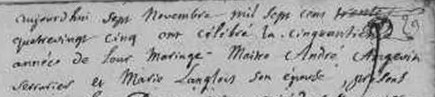 aujourdhui sept Novembre mil sept cens trente
quatrevingt cinq ont célébré la cinquantieme
année de leur Mariage Maitre André Angevin
serrurier et Marie Langlois son epouse, présent